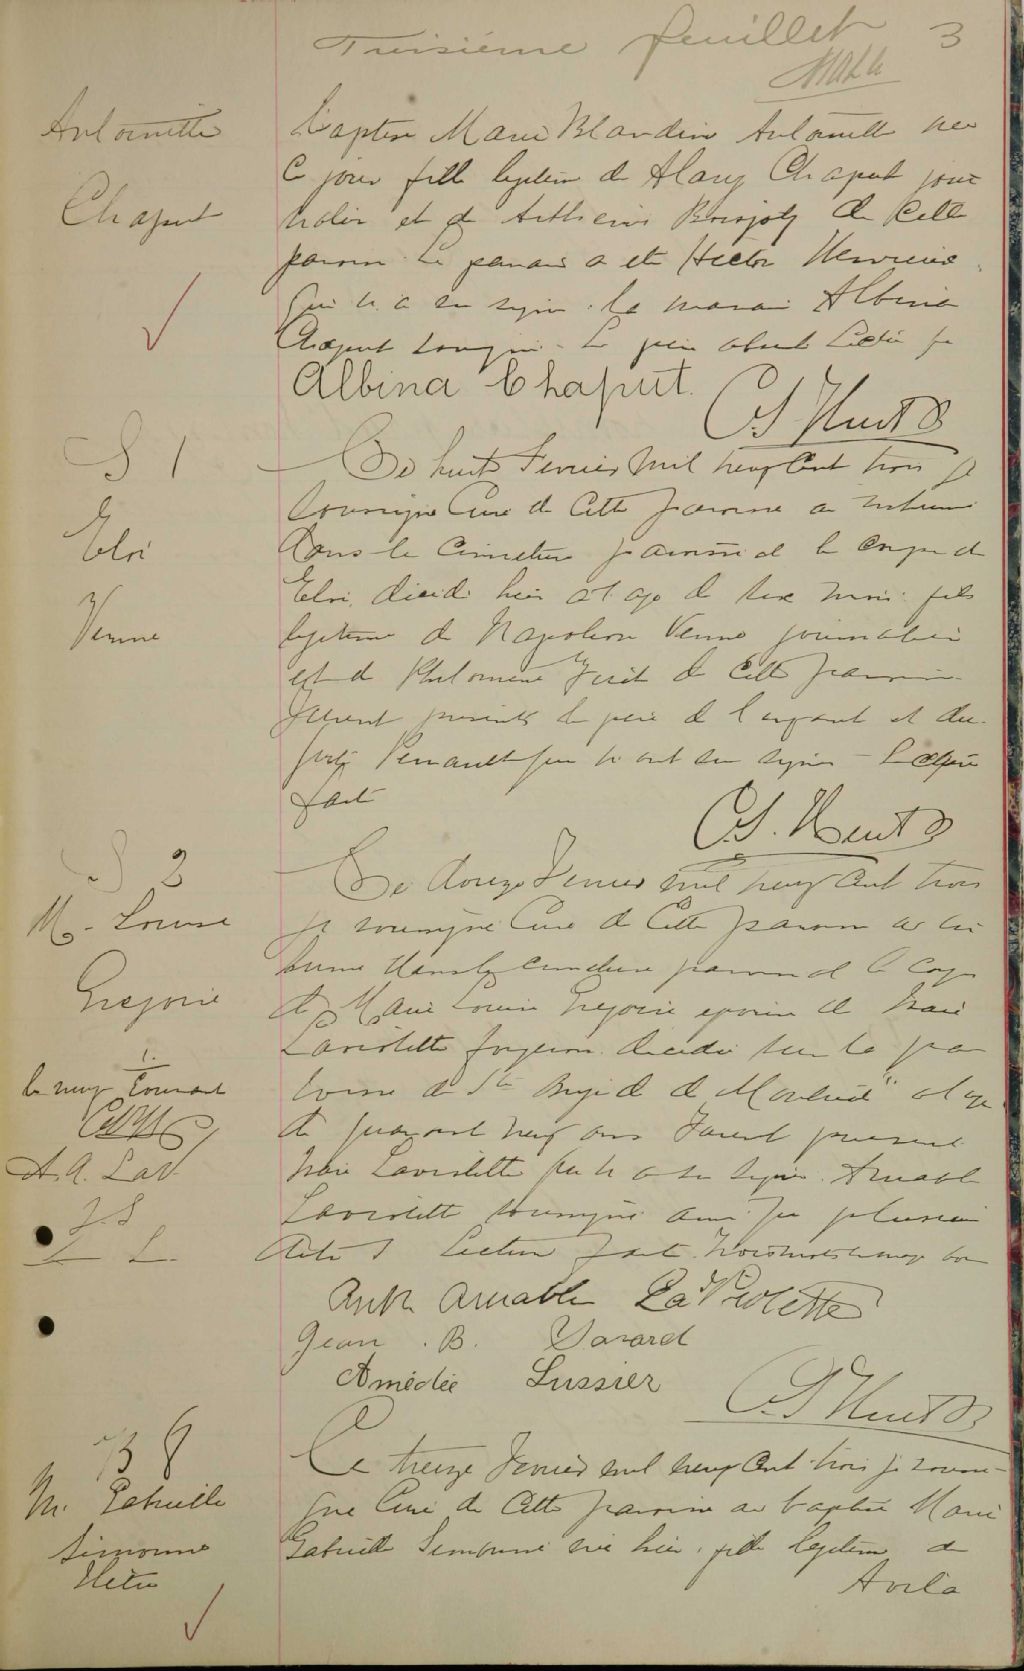 Troisième feuillet 3
Antoinette
Chaput
baptisé Marie Blandine Antoinette née
ce jour fille legitime de Alary Chaput jour
nalier et de de cette
paroisse Le parrain a été Hector
qui n'a su signer. la marraine Albina
Chaput soussigné. Le père absent Lecture fte
Albina Chaput.
S 1
Eloi
Venne
Ce huit Fevrier mil neuf cent trois je
soussigné Curé de cette paroisse ai inhumé
dans le cimetière paroissial le corps de
Eloi, décédé hier agé de six mois fils
legitime de Napoleon Venne journalier
et de Philomène de cette paroisse.
Furent présents le père de l'enfant et
qui n'ont su signer - Lecture
faite
S 2
M. Louise
Gregoire
Ce douze Fevrier mil neuf cent trois
je soussigné Curé de cette paroisse ai in
humé dans le cimetière paroissial le corps
de Marie Louise Gregoire epouse de Isaie
Laviolette forgeron. décédée sur la pa
roisse de Ste Brigide de Montréal agée
de quarante neuf ans Furent présents
Isaie Laviolette qui n'a su signer. Amable
Laviolette soussigné ainsi que plusieurs
autres Lecture faite. Trois mots en marge bon
1.
le neuf Courant
A. A. Lav.
J. S
L L.
Amable LaViolette
Jean . B. Savard
Amédée Lussier
B 8
M. Gabrielle
Simonne
Hétu
Ce treize Fevrier mil neuf cent trois je soussi-
gné Curé de cette paroisse ai baptisé Marie
Gabrielle Simonne née hier, fille legitime de
Avila